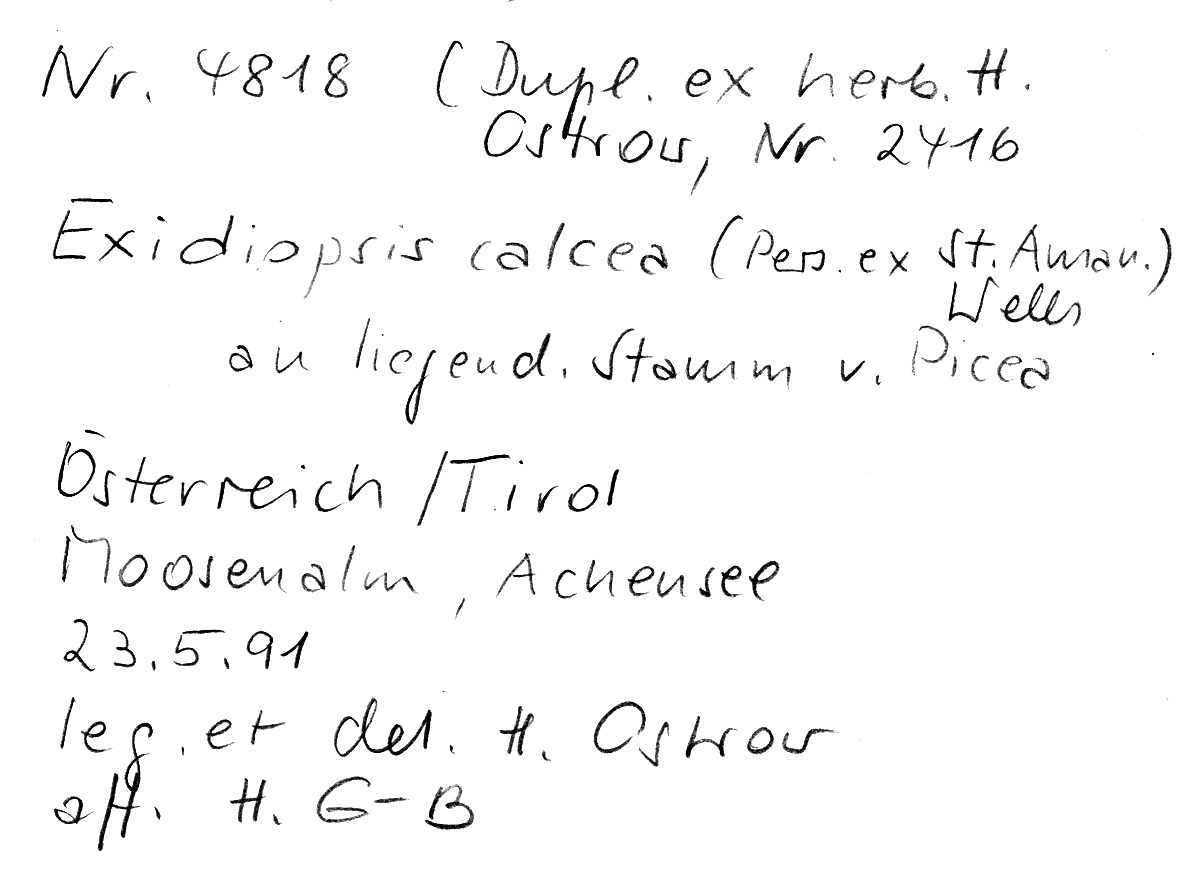 Nr. 4818 (Dupl. ex herb. H.
Ostrow, Nr. 2416
Exidiopsis calcea (Pers. ex St. Aman.)
Wells
an liegend. Stamm v. Picea
Österreich /Tirol
Moosenalm, Achensee
23.5.91
leg. et det. H. Ostrow
aff. H. G-B